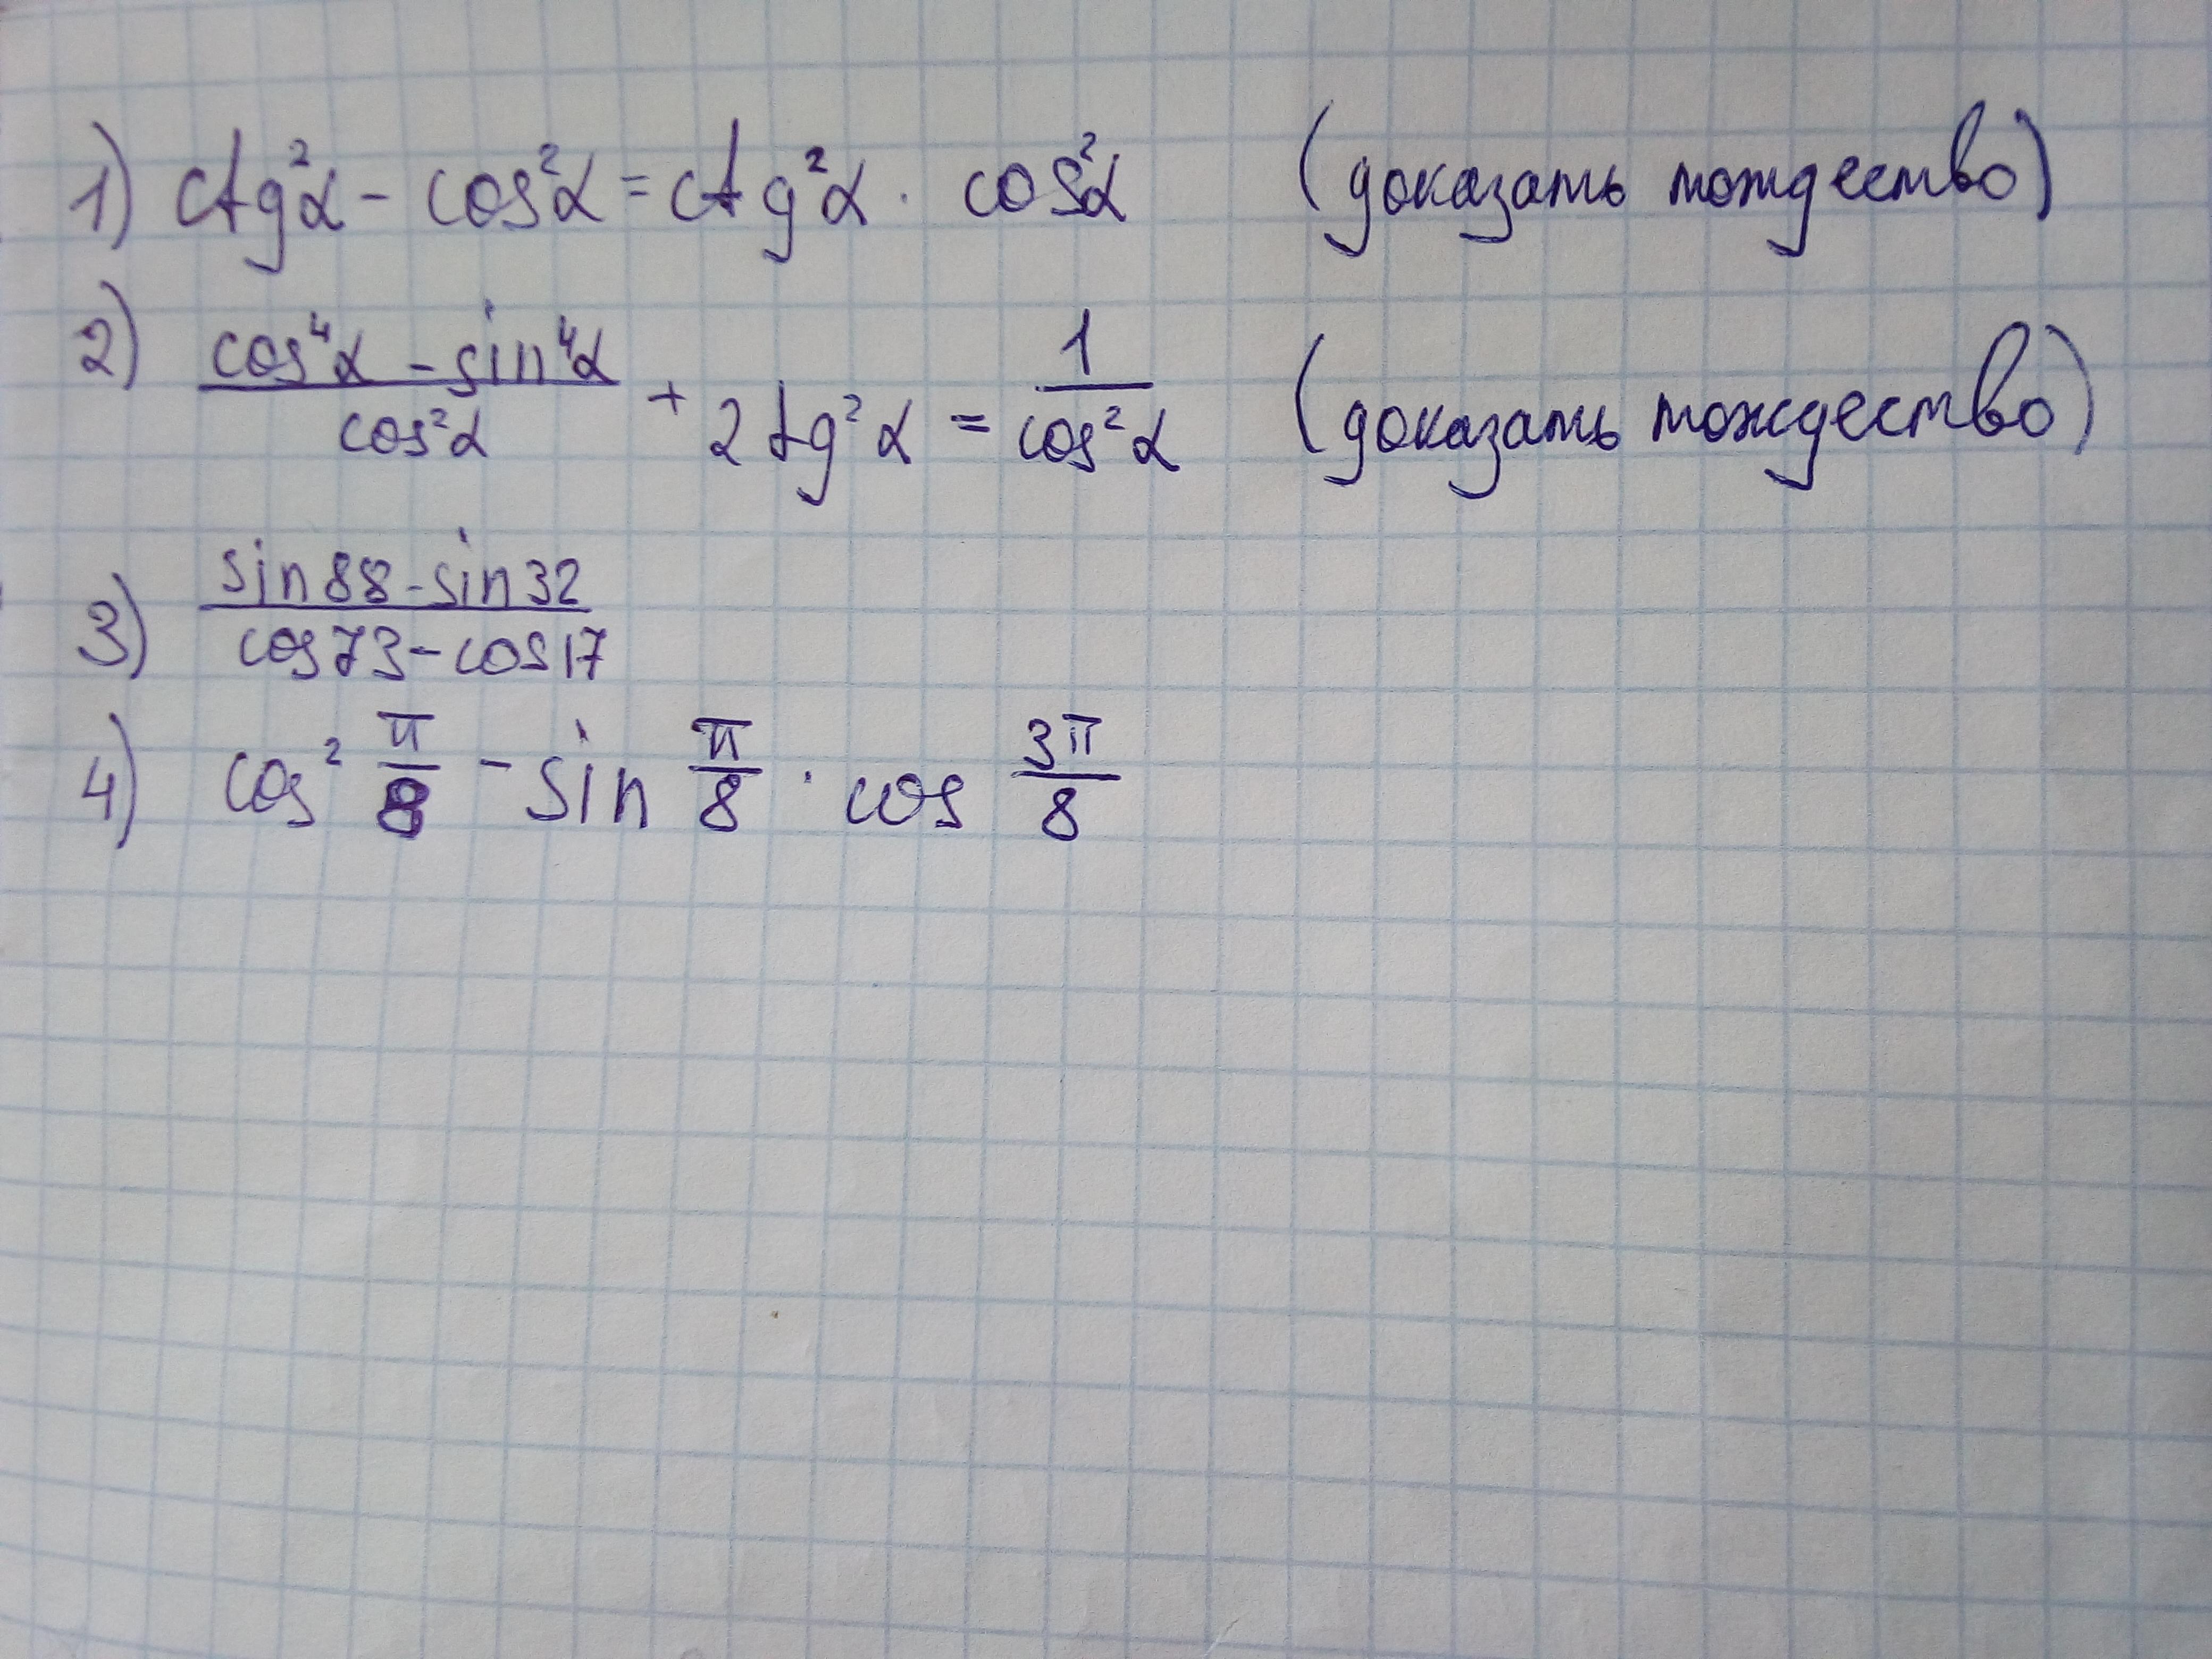 1) ctg²α - cos²α = ctg²α · cos²α (доказать тождество)
2) (cos⁴α - sin⁴α)/(cos²α) + 2tg²α = 1/(cos²α) (доказать тождество)
3) (sin88 - sin32)/(cos73 - cos17)
4) cos² π/8 - sin π/8 · cos 3π/8